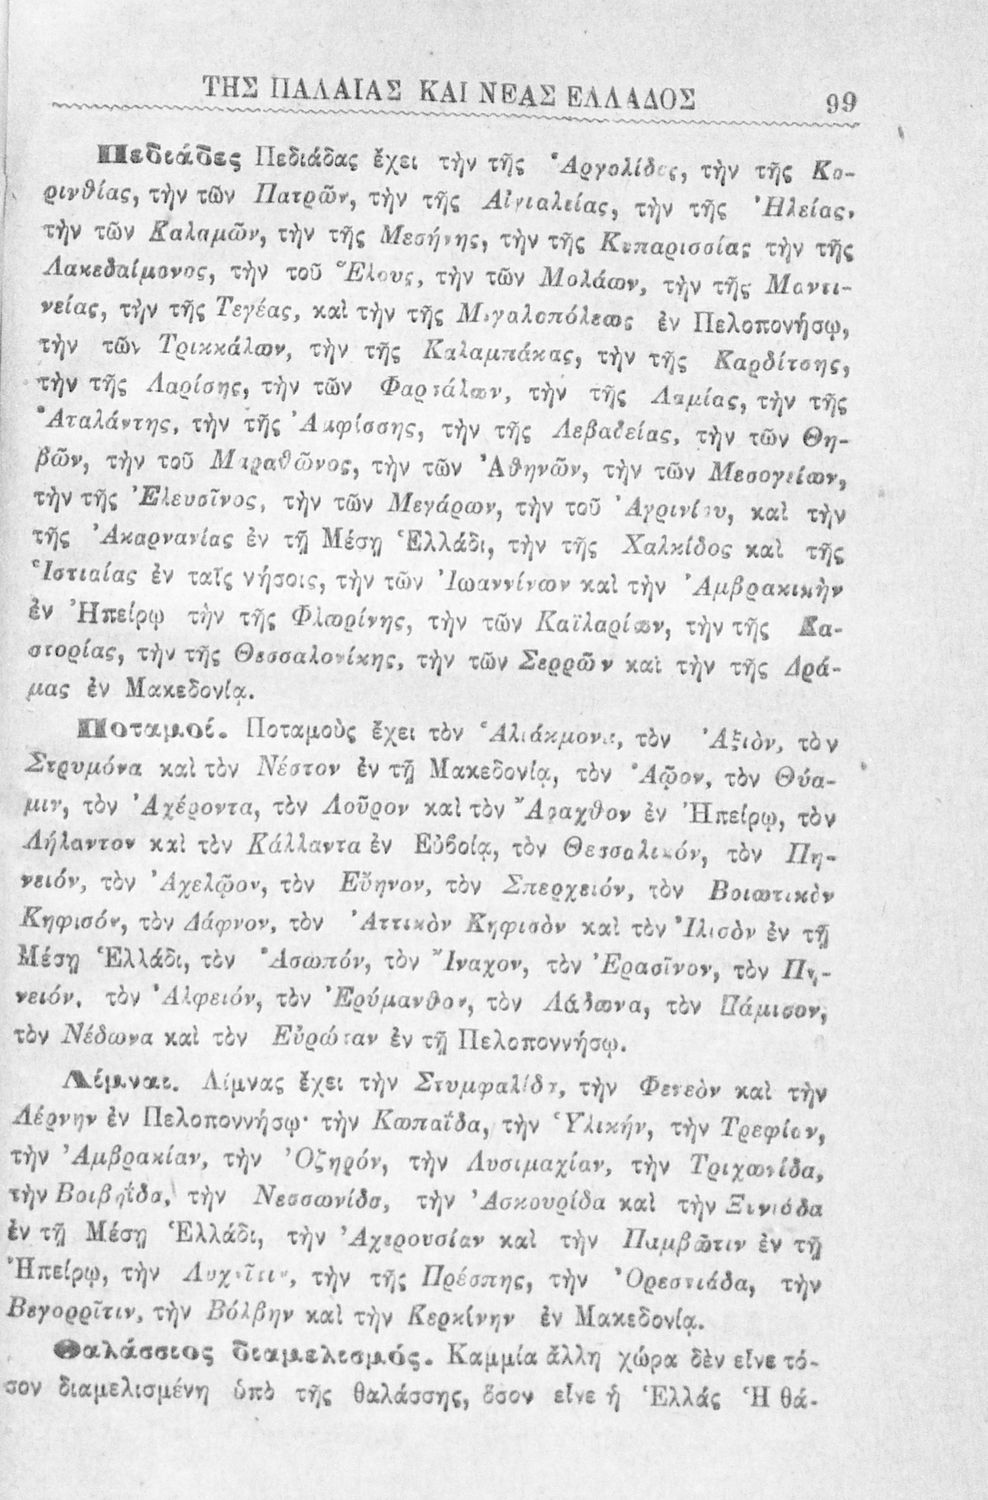 ΤΗΣ ΠΑΛΑΙΑΣ ΚΑΙ ΝΕΑΣ ΕΛΛΑΔΟΣ 99
Πεδιάδες Πεδιάδας ἔχει τὴν τῆς Ἀργολίδος, τὴν τῆς Κο-
ρινθίας, τὴν τῶν Πατρῶν, τὴν τῆς Αἰγιαλείας, τὴν τῆς Ἠλείας,
τὴν τῶν Καλαμῶν, τὴν τῆς Μεσήνης, τὴν τῆς Κυπαρισσίας τὴν τῆς
Λακεδαίμονος, τὴν τοῦ Ἕλους, τὴν τῶν Μολάων, τὴν τῆς Μαντι-
νείας, τὴν τῆς Τεγέας, καὶ τὴν τῆς Μεγαλοπόλεως ἐν Πελοπονήσῳ,
τὴν τῶν Τρικκάλων, τὴν τῆς Καλαμπάκας, τὴν τῆς Καρδίτσης,
τὴν τῆς Λαρίσης, τὴν τῶν Φαρσάλων, τὴν τῆς Λαμίας, τὴν τῆς
Ἀταλάντης, τὴν τῆς Ἀμφίσσης, τὴν τῆς Λεβαδείας, τὴν τῶν Θη-
βῶν, τὴν τοῦ Μαραθῶνος, τὴν τῶν Ἀθηνῶν, τὴν τῶν Μεσογείων,
τὴν τῆς Ἐλευσῖνος, τὴν τῶν Μεγάρων, τὴν τοῦ Ἀγρινίου, καὶ τὴν
τῆς Ἀκαρνανίας ἐν τῇ Μέσῃ Ἑλλάδι, τὴν τῆς Χαλκίδος καὶ τῆς
Ἱστιαίας ἐν ταῖς νήσοις, τὴν τῶν Ἰωαννίνων καὶ τὴν Ἀμβρακικὴν
ἐν Ἠπείρῳ τὴν τῆς Φλωρίνης, τὴν τῶν Καϊλαρίων, τὴν τῆς Κα-
στορίας, τὴν τῆς Θεσσαλονίκης, τὴν τῶν Σερρῶν καὶ τὴν τῆς Δρά-
μας ἐν Μακεδονίᾳ.
Ποταμοί. Ποταμοὺς ἔχει τὸν Ἁλιάκμονα, τὸν Ἀξιὸν, τὸν
Στρυμόνα καὶ τὸν Νέστον ἐν τῇ Μακεδονίᾳ, τὸν Ἀῷον, τὸν Θύα-
μιν, τὸν Ἀχέροντα, τὸν Λοῦρον καὶ τὸν Ἄραχθον ἐν Ἠπείρῳ, τὸν
Λήλαντον καὶ τὸν Κάλλαντα ἐν Εὐβοίᾳ, τὸν Θεσσαλικόν, τὸν Πη-
νειόν, τὸν Ἀχελῷον, τὸν Εὔηνον, τὸν Σπερχειόν, τὸν Βοιωτικὸν
Κηφισόν, τὸν Δάφνον, τὸν Ἀττικὸν Κηφισὸν καὶ τὸν Ἰλισὸν ἐν τῇ
Μέσῃ Ἑλλάδι, τὸν Ἀσωπόν, τὸν Ἴναχον, τὸν Ἐρασῖνον, τὸν Πη-
νειόν, τὸν Ἀλφειόν, τὸν Ἐρύμανθον, τὸν Λάδωνα, τὸν Πάμισον,
τὸν Νέδωνα καὶ τὸν Εὐρώταν ἐν τῇ Πελοποννήσῳ.
Λίμναι. Λίμνας ἔχει τὴν Στυμφαλίδα, τὴν Φενεὸν καὶ τὴν
Λέρνην ἐν Πελοποννήσῳ· τὴν Κωπαΐδα, τὴν Ὑλικήν, τὴν Τρεφίαν,
τὴν Ἀμβρακίαν, τὴν Ὀζηρόν, τὴν Λυσιμαχίαν, τὴν Τριχωνίδα,
τὴν Βοιβηΐδα, τὴν Νεσσωνίδα, τὴν Ἀσκουρίδα καὶ τὴν Ξυνιάδα
ἐν τῇ Μέσῃ Ἑλλάδι, τὴν Ἀχερουσίαν καὶ τὴν Παμβῶτιν ἐν τῇ
Ἠπείρῳ, τὴν Λυχνῖτιν, τὴν τῆς Πρέσπης, τὴν Ὀρεστιάδα, τὴν
Βεγορρῖτιν, τὴν Βόλβην καὶ τὴν Κερκίνην ἐν Μακεδονίᾳ.
Θαλάσσιος διαμελισμός. Καμμία ἄλλη χώρα δὲν εἶνε τό-
σον διαμελισμένη ὑπὸ τῆς θαλάσσης, ὅσον εἶνε ἡ Ἑλλάς Ἡ θά-